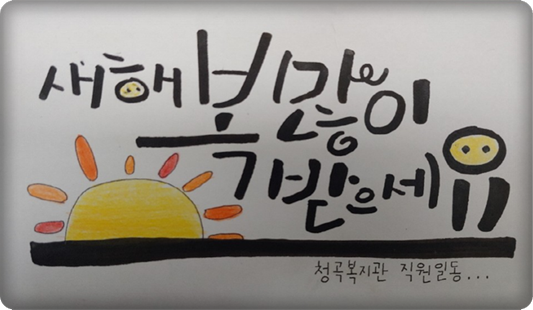 새해 복 많이
받으세유
청곡복지관 직원일동...